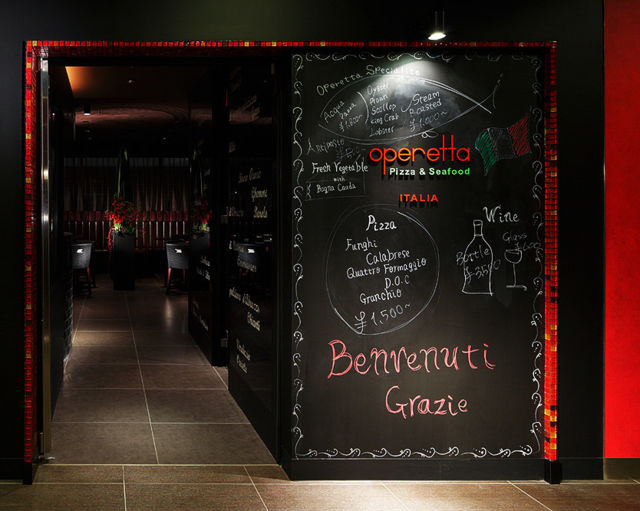 OPeretta SPecialite
Acqua Pazza
¥1,800~
Oyster
Prawn
Scallop
King Crab
Lobster
Steam
or
Roasted
¥1,000~
Antipasto
Fresh Vegetable
with
Bagna Cauda
operetta
Pizza & Seafood
ITALIA
Pizza
Funghi
Calabrese
Quattro Formaggio
D.O.C
Granchio
¥1,500~
Wine
Bottle
¥3500
Glass
Benvenuti
Grazie